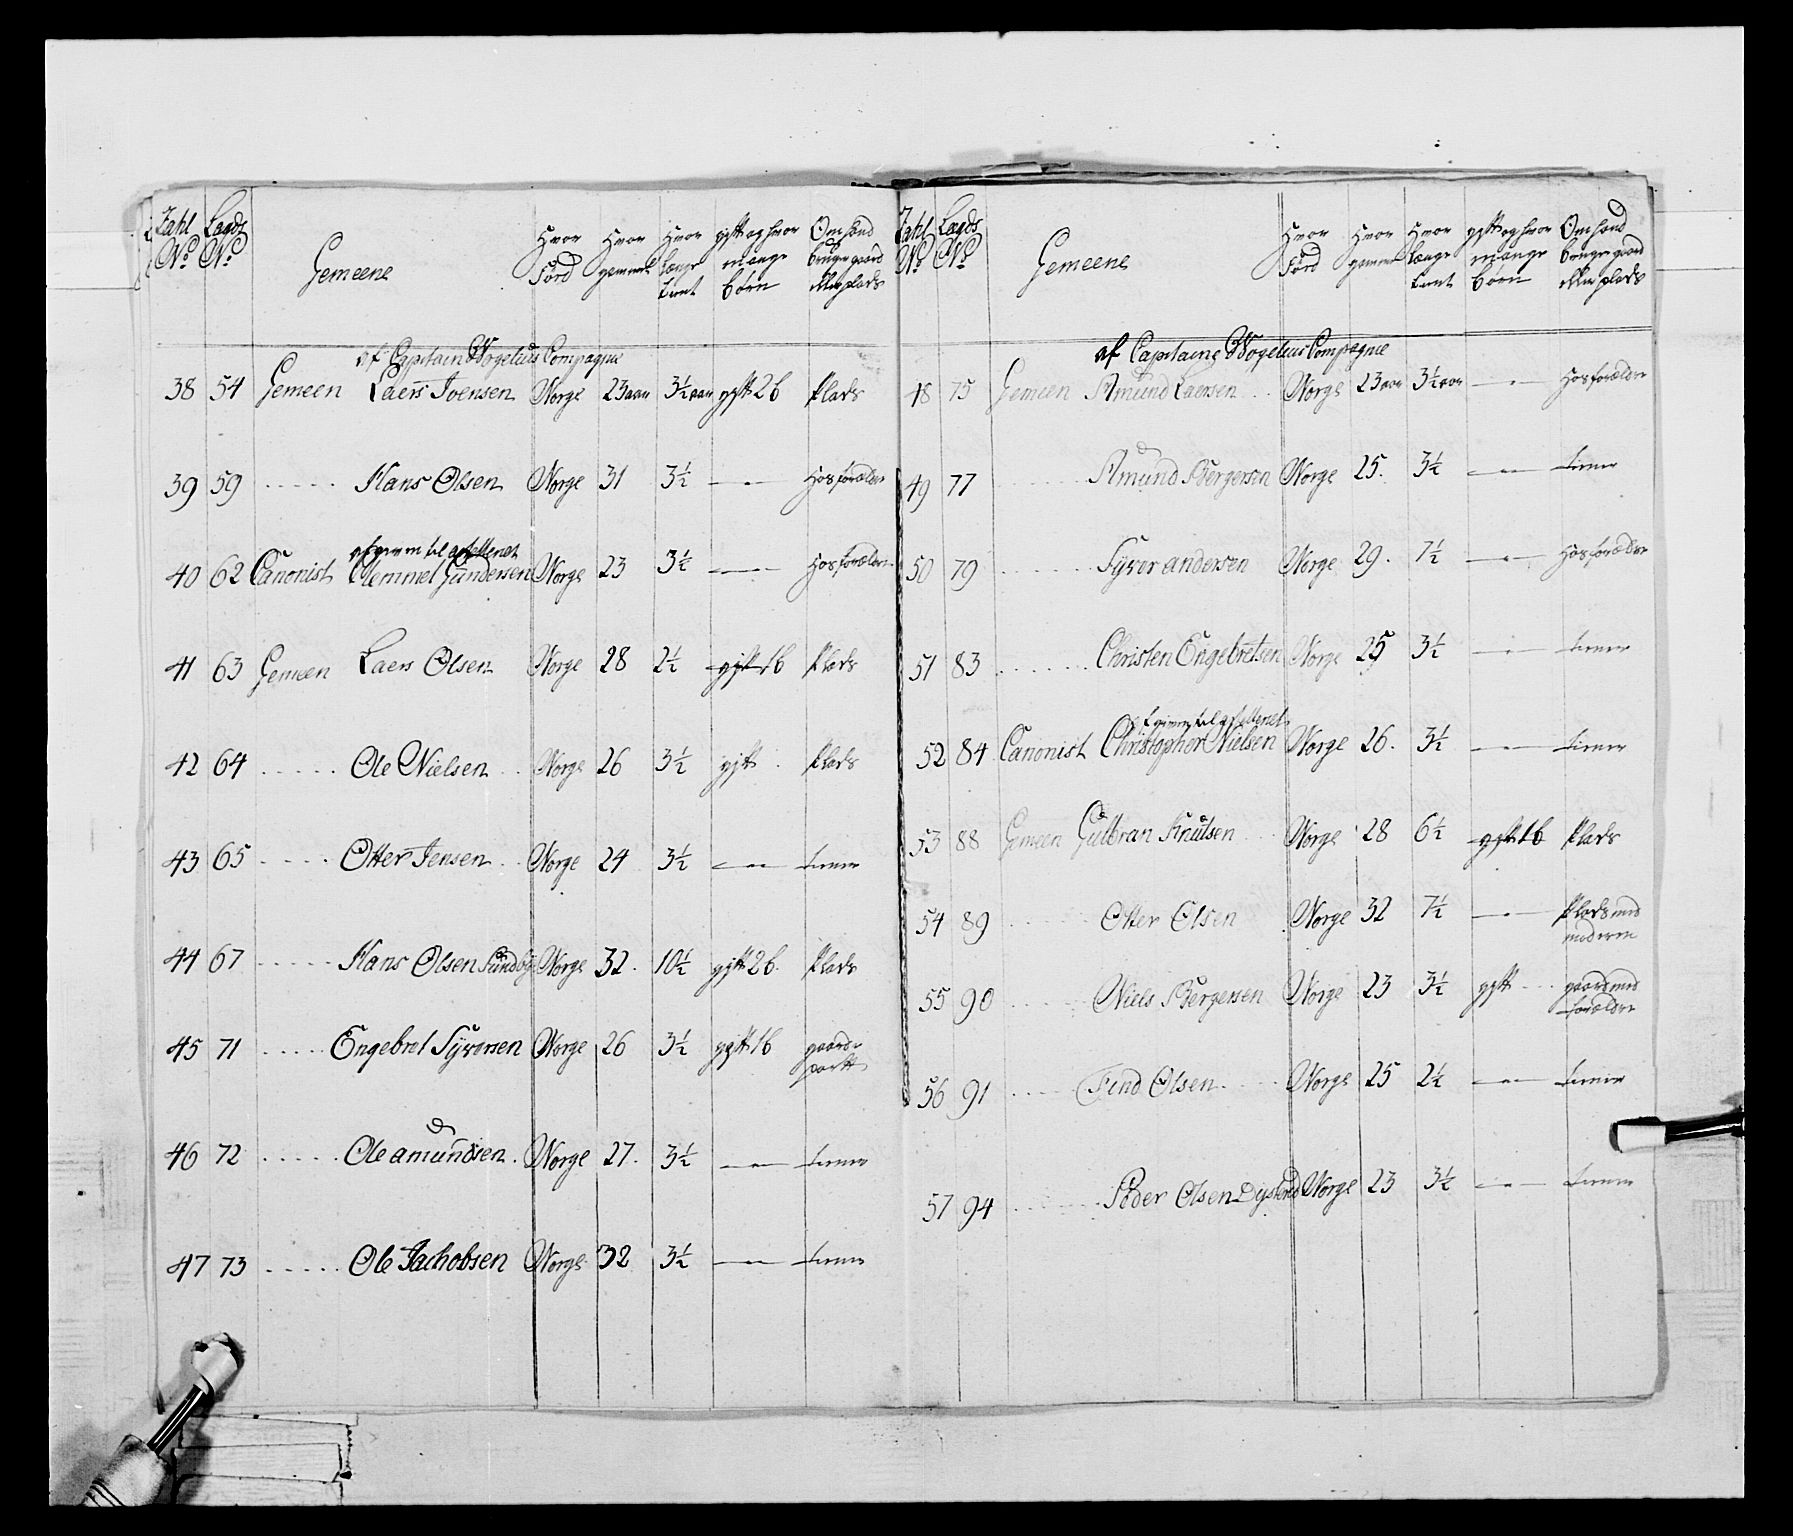 Zahl No Lagds No Gemeene Hvor Förd Hvor gammel Hvor længe tient gift og hvor mange börn Om hand bruger gaard eller plads
af Capitain Wogelius Compagnie
38 54 Gemeen Laers Joensen Norge 23 aar 3½ aar gift 2 b Plads
39 59 ..... Hans Olsen Norge 31 3½ — hos forældre
afgiven til Artelleriet
40 62 Canonist Clemmet Gundersen Norge 23 3½ — hos forældre
41 63 Gemeen Laers Olsen Norge 28 2½ gift 1 b Plads
42 64 ..... Ole Nielsen Norge 26 3½ gift Plads
43 65 .... Otter Jensen Norge 24 3½ — tiener
44 67 ..... Hans Olsen Sundbye Norge 32. 10½ gift 2 b. Plads
45 71 ..... Engebret Syversen Norge 26 3½ gift 1 b gaarde
part
46 72 ..... Ole amundsen. Norge 27. 3½ — tiener
47 73 ..... Ole Jachobsen Norge 32 3½ — tiener
Zahl No Lagds No Gemeene Hvor Förd Hvor gammel Hvor længe tient gift og hvor mange börn Om hand bruger gaard eller plads
af Capitaine Wogelius Compagnie
48 75 Gemeen Amund Laersen Norge 23 aar 3½ aar — hos forældre
49 77 ..... Amund Bergersen Norge 25. 3½ — tiener
50 79 ..... Syver andersen Norge 29. 7½ — hos forældre
51 83 ..... Christen Engebretsen Norge 25 3½ — tiener
afgiven til Artelleriet
52 84 Canonist Christopher Nielsen Norge 26. 3½ — tiener
53 88 Gemeen Gulbran Knutsen Norge 28 6½ gift 1 b Plads
54 89 ..... Otter Olsen Norge 32 7½ — Plads med
moderen
55 90 ..... Niels Bergersen Norge 23 3½ gift gaard med
forældre
56 91 ..... Find Olsen Norge 25 2½ — tiener
57 94 ..... Peder Olsen Norge 23 3½ — tiener